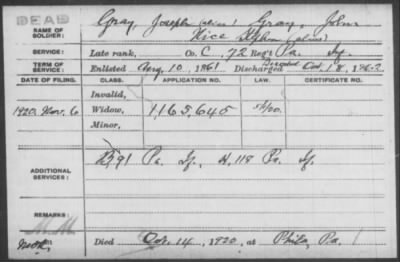 DEAD
NAME OF SOLDIER: Gray, Joseph (alias) Gray, John
Rice (alias)
SERVICE: Late rank, Co. C, 72 Reg't Pa. If.
TERM OF SERVICE: Enlisted Aug. 10, 1861 Discharged Deserted Oct. 18, 1862
DATE OF FILING. CLASS. APPLICATION NO. LAW. CERTIFICATE NO.
Invalid,
1920, Nov. 6 Widow, 1165,645
Minor,
ADDITIONAL SERVICES: B, 91 Pa. If, H, 118 Pa. If.
REMARKS:
Died Oct. 14, 1920, at Phila, Pa.